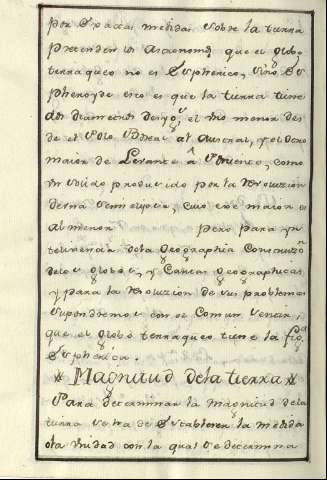 por exactas medidas sobre la tierra
pretenden los Astronomos que el globo
terraqueo no es Espherico, sino Es
pheroyde esto es que la tierra tiene
dos diametros desigs, el uno menor des
de el Polo Boreal al Austral, y el otro
maior de Levante a Poniente, como
un solido producido por la Revoluzion
de una semielipcia, cuio exe maior es
al menor pero para yn
teligencia de la Geographia Construzon
de los globos, y Cartas geographicas
y para la resoluzion de sus problemas
supondremos con el Comun sentir,
que el globo terraqueo tiene la figa
Espherica.
Magnitud de la tierra
Para determinar la magnitud de la
tierra se ha de Establezer la medida
o la unidad con la qual se determina